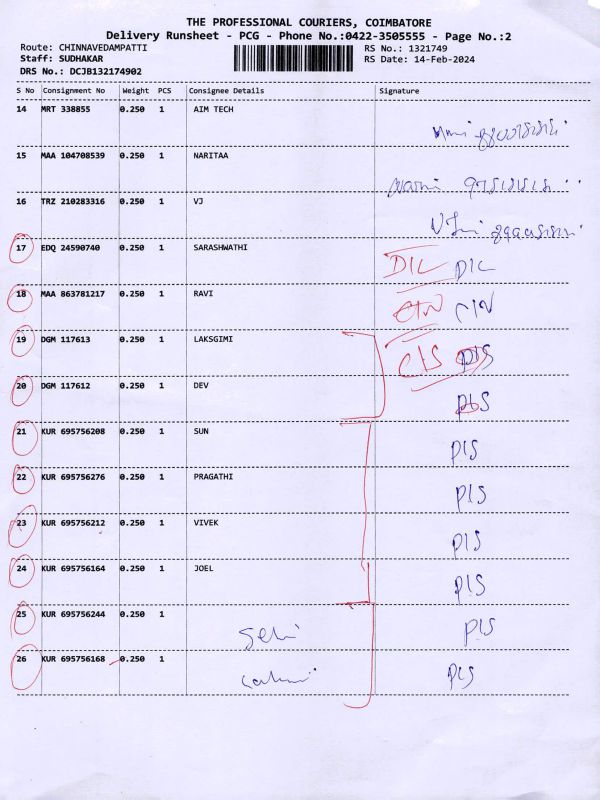 THE PROFESSIONAL COURIERS, COIMBATORE
Delivery Runsheet - PCG - Phone No.:0422-3505555 - Page No.:2
Route: CHINNAVEDAMPATTI RS No.: 1321749
Staff: SUDHAKAR RS Date: 14-Feb-2024
DRS No.: DCJB132174902
S No Consignment No Weight PCS Consignee Details Signature
14 MRT 338855 0.250 1 AIM TECH
15 MAA 104708539 0.250 1 NARITAA
16 TRZ 210283316 0.250 1 VJ
17 EDQ 24590740 0.250 1 SARASHWATHI DIL DIL
18 MAA 863781217 0.250 1 RAVI CIN
19 DGM 117613 0.250 1 LAKSGIMI CIS PIS
20 DGM 117612 0.250 1 DEV PIS
21 KUR 695756208 0.250 1 SUN PIS
22 KUR 695756276 0.250 1 PRAGATHI PIS
23 KUR 695756212 0.250 1 VIVEK PIS
24 KUR 695756164 0.250 1 JOEL PIS
25 KUR 695756244 0.250 1 PIS
26 KUR 695756168 0.250 1 PIS